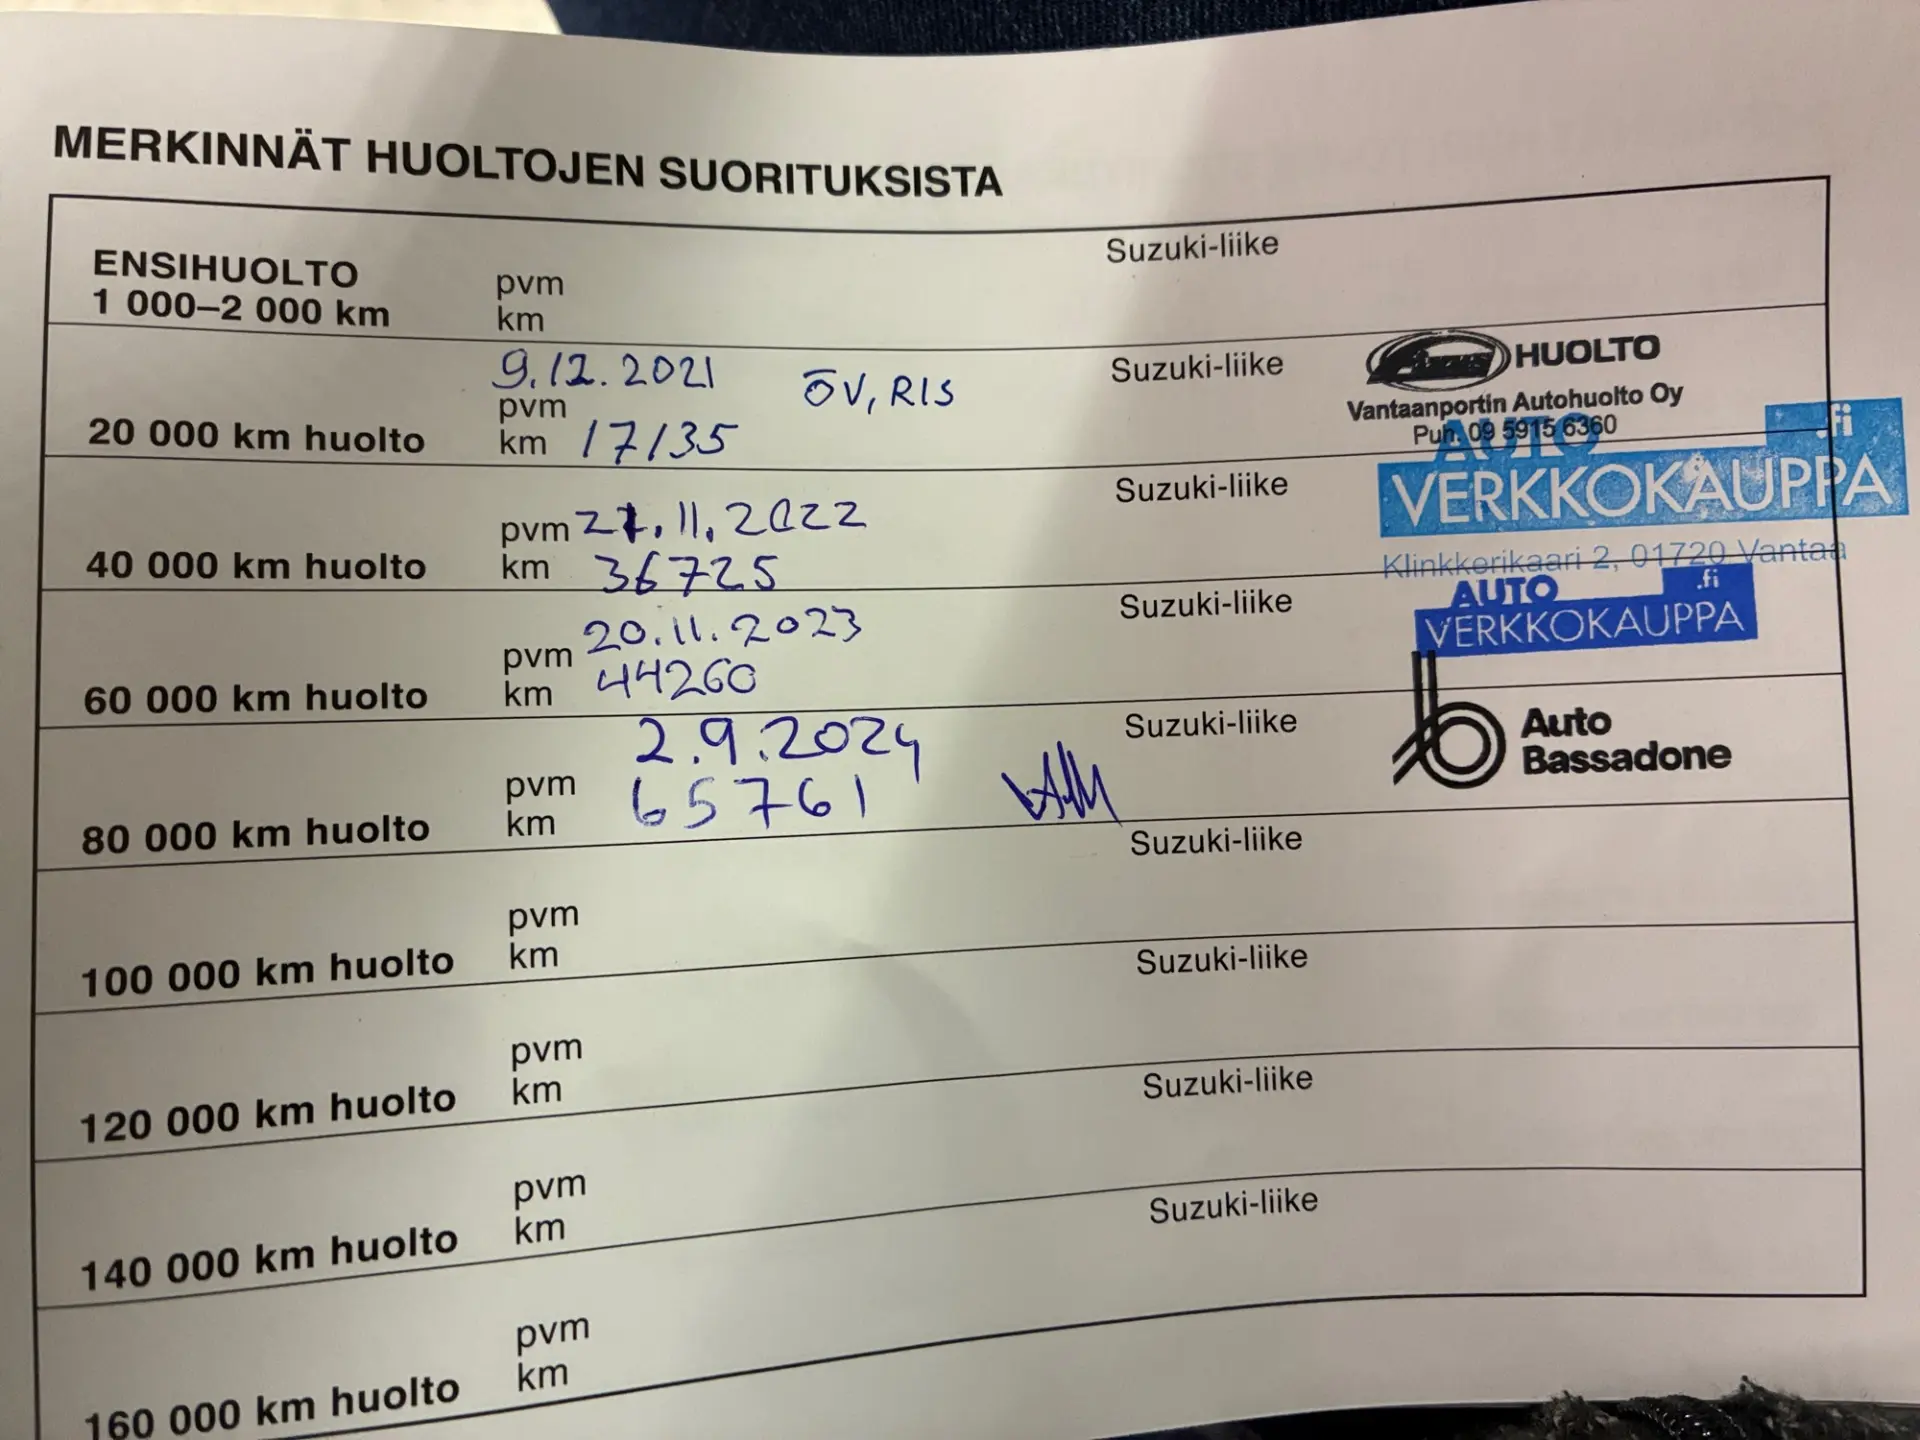 MERKINNÄT HUOLTOJEN SUORITUKSISTA
ENSIHUOLTO
1 000–2 000 km
pvm
km
Suzuki-liike
20 000 km huolto
9.12.2021
pvm
km 17135
ÖV, RIS
Suzuki-liike
HUOLTO
Vantaanportin Autohuolto Oy
Puh. 09 5915 6360
40 000 km huolto
pvm 21.11.2022
km 36725
Suzuki-liike
AUTO .fi
VERKKOKAUPPA
Klinkkerikaari 2, 01720 Vantaa
60 000 km huolto
20.11.2023
pvm
km 44260
Suzuki-liike
AUTO .fi
VERKKOKAUPPA
80 000 km huolto
2.9.2024
pvm 65761
km
Suzuki-liike
Auto
Bassadone
100 000 km huolto
pvm
km
Suzuki-liike
120 000 km huolto
pvm
km
Suzuki-liike
140 000 km huolto
pvm
km
Suzuki-liike
160 000 km huolto
pvm
km
Suzuki-liike